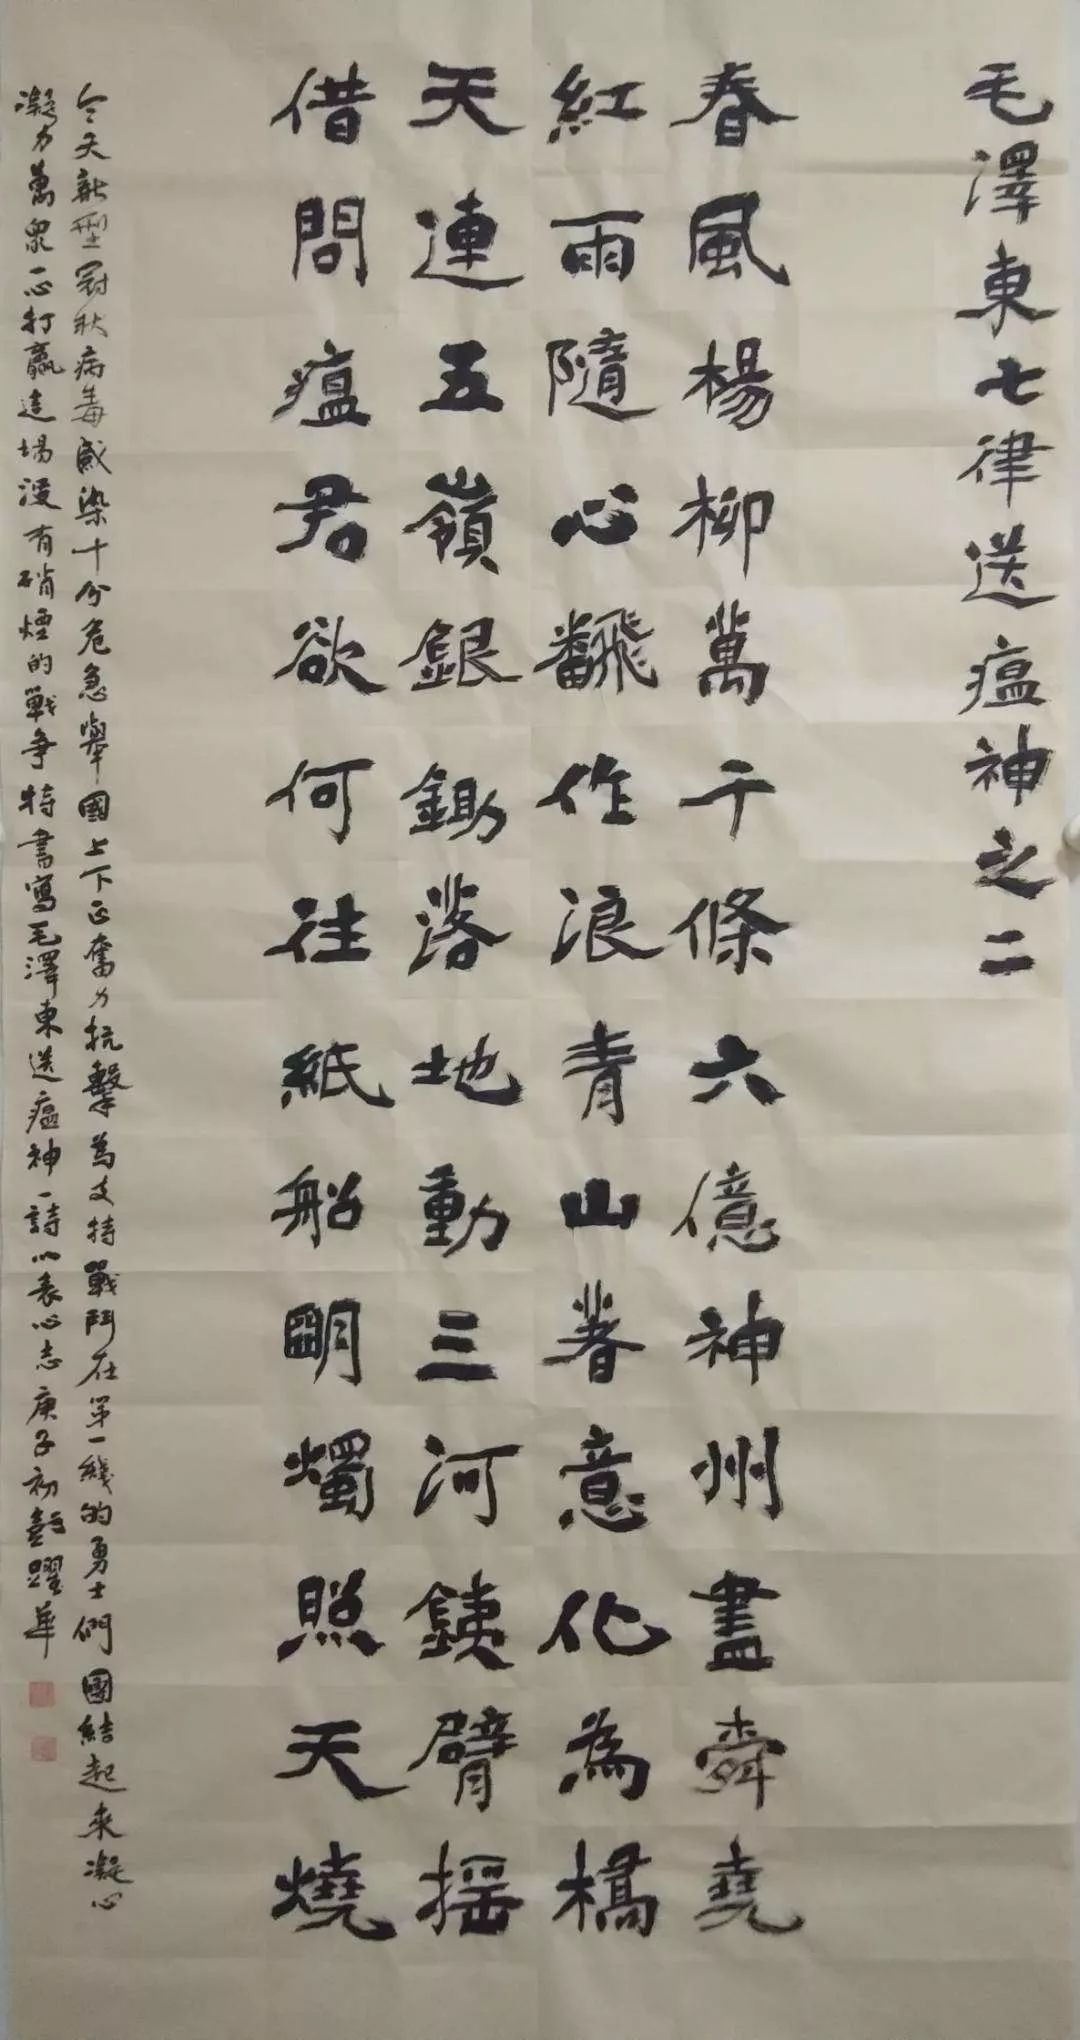 毛澤東七律送瘟神之二
春風楊柳萬千條六億神州盡舜堯
紅雨隨心飜作浪青山着意化為橋
天連五嶺銀鋤落地動三河鐵臂搖
借問瘟君欲何往紙船明燭照天燒
今天新型冠狀病毒感染十分危急舉國上下正奮力抗擊為支持戰鬥在第一綫的勇士們團結起來凝心
凝力萬衆一心打贏這場沒有硝煙的戰爭特書寫毛澤東送瘟神一詩以表心志庚子初躍華